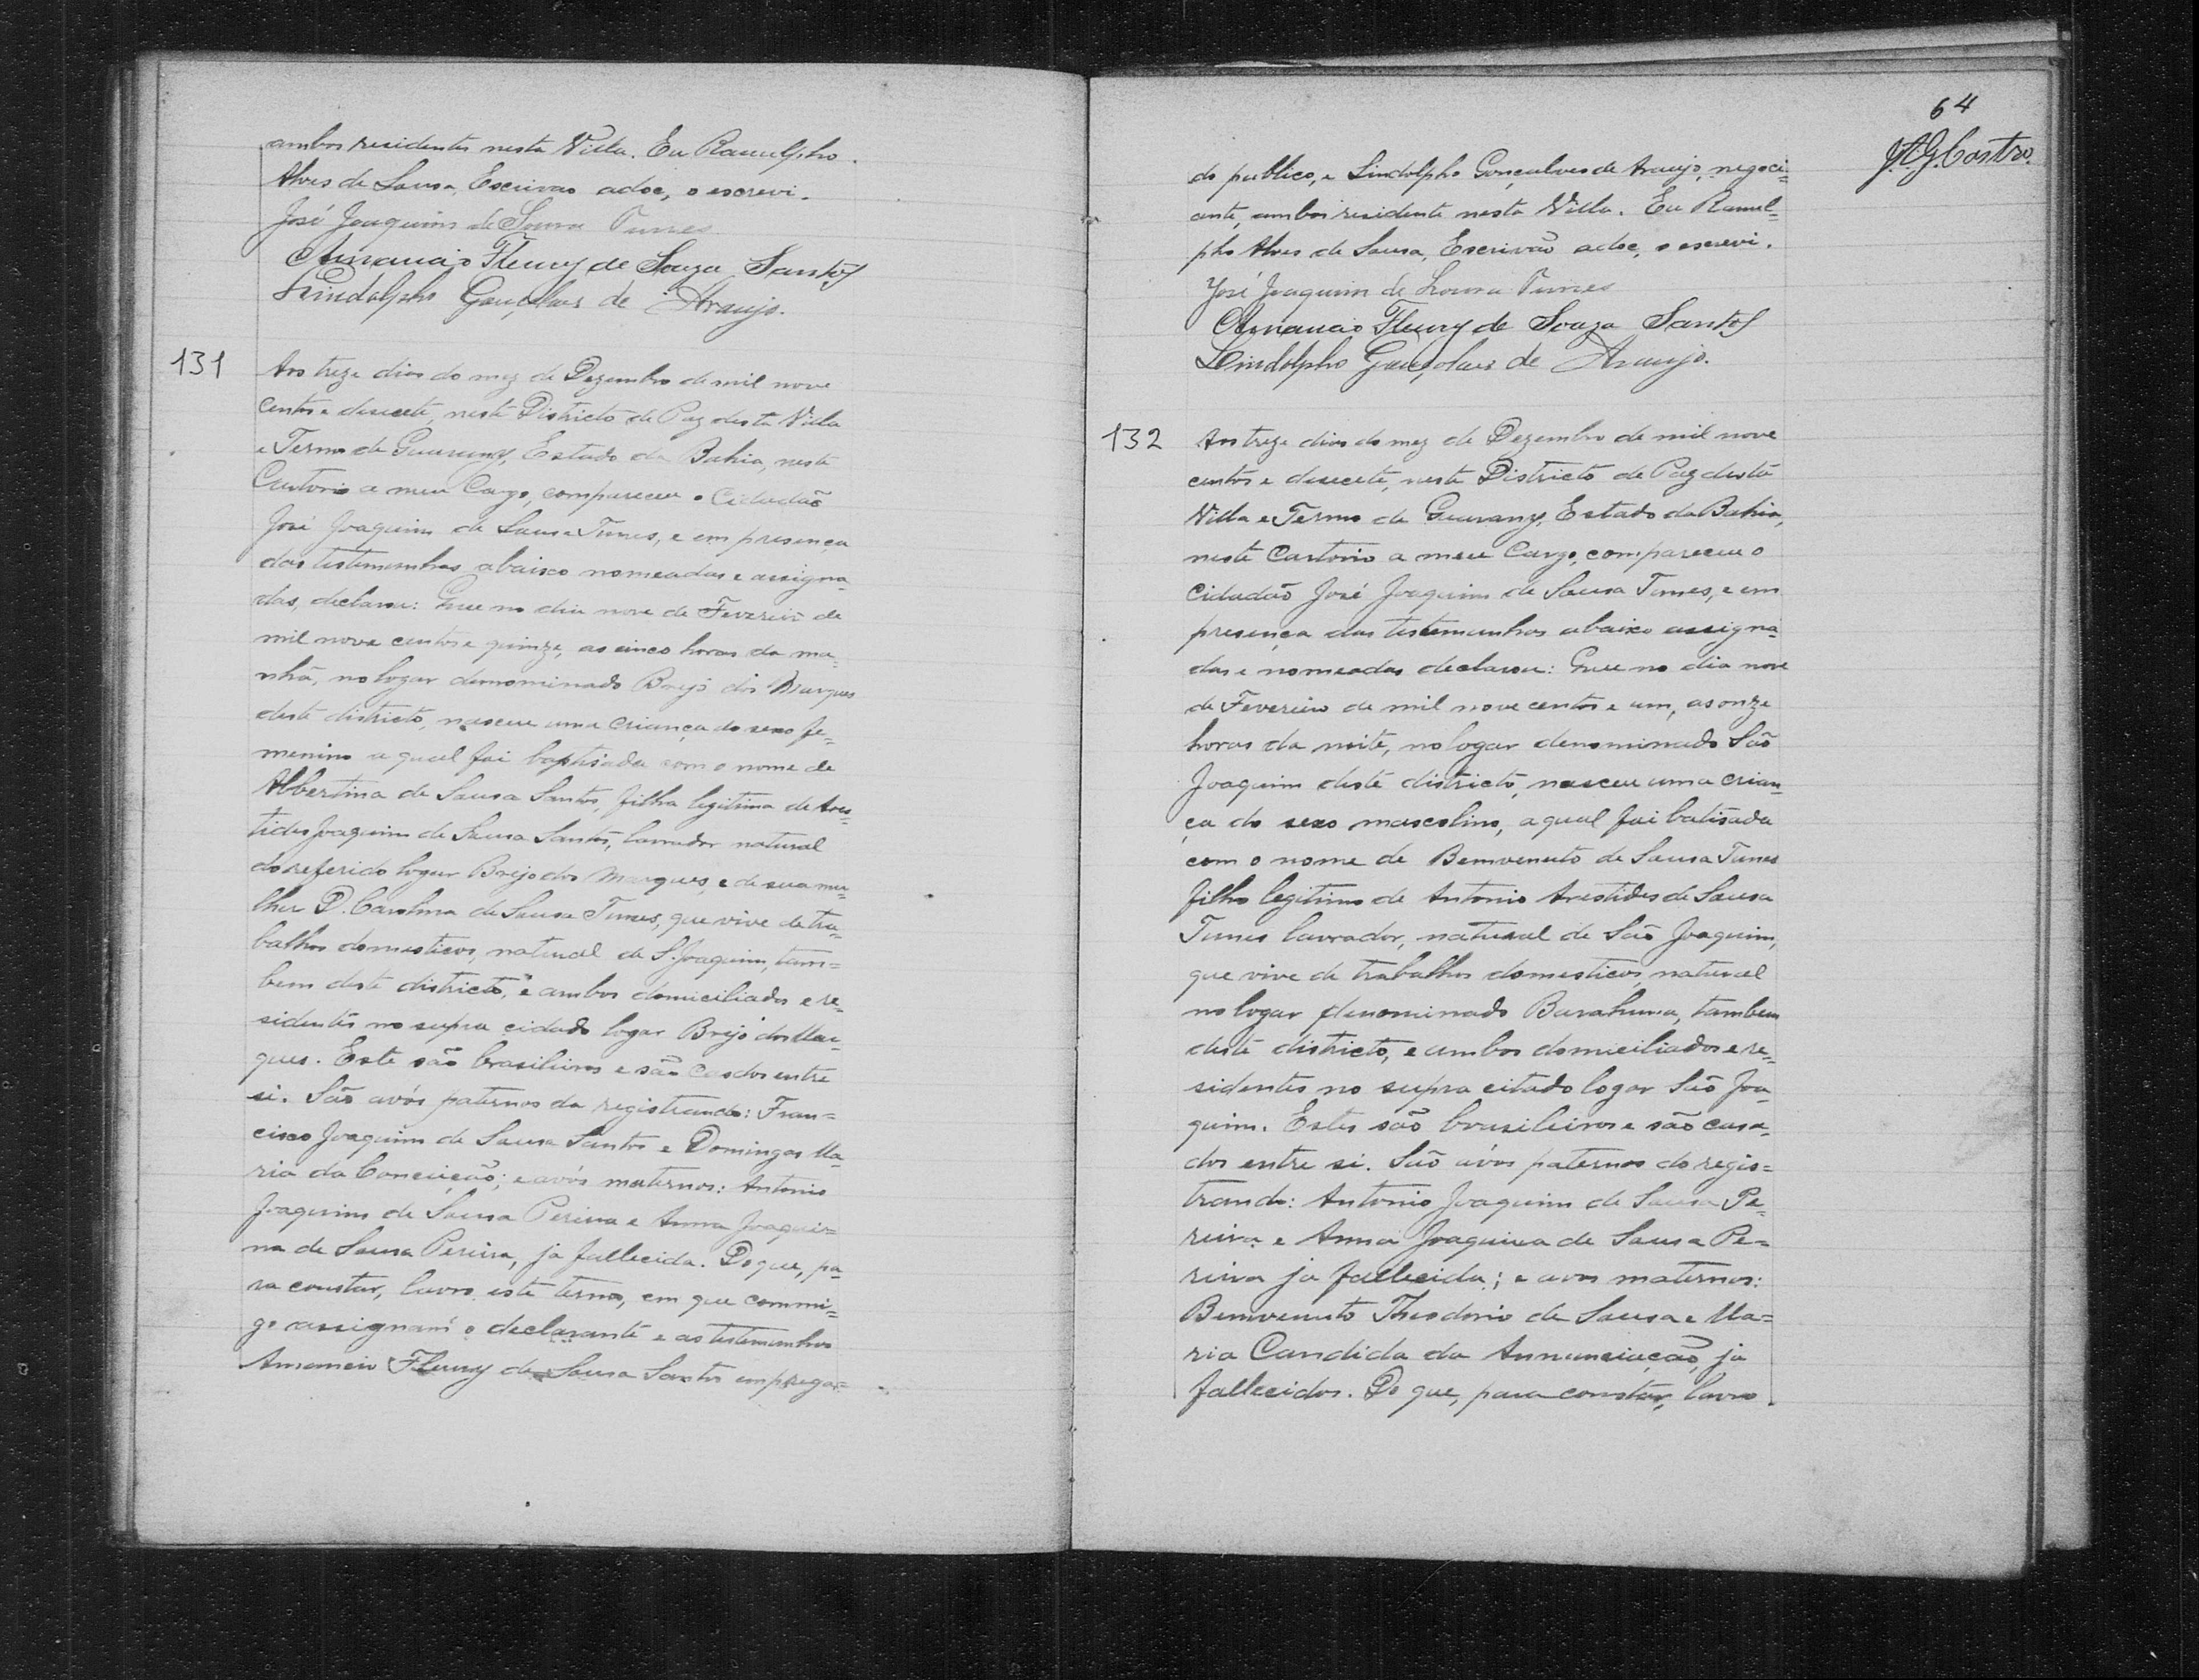 ambos residentes nesta Villa. Eu Ranulpho
Alves de Sousa, Escrivao adoc, o escrevi.
José Joaquim de Sousa Tunes
Amancio Fleury de Souza Santos
Lindolpho Gonçalves de Araujo.
131
Aos treze dias do mez de Dezembro de mil nove
centos e desecete, neste Districto de Paz desta Villa
e Termo de Guarany, Estado da Bahia, neste
Cartorio a meu Cargo, compareceu o Cidadão
José Joaquim de Sousa Tunes, e em presença
das testemunhas abaixo nomeadas e assigna-
das, declarou: Que no dia nove de Fevereiro de
mil nove centos e quinze, as cinco horas da ma-
nhã, no logar denominado Brejo dos Marques
deste districto, nasceu uma criança do sexo fe-
menino a qual foi baptisada com o nome de
Albertina de Sousa Santos, filha legitima de Aris-
tides Joaquim de Sousa Santos, lavrador natural
do referido logar Brejo dos Marques, e de sua mu-
lher D. Carolina de Sousa Tunes, que vive de tra-
balhos domesticos, natural de S. Joaquim, tam=
bem deste districto, e ambos domiciliados e re-
sidentes no supra cidado logar Brejo dos Mar-
ques. Este são brasileiros e são casdos entre
si. São avós paternos da registranda: Fran=
cisco Joaquim de Sousa Santos e Domingas Ma-
ria da Conceição; e avós maternos: Antonio
Joaquim de Sousa Pereira e Anna Joaqui=
na de Sousa Pereira, ja fallecida. Do que, pa-
ra constar, lavro este termo, em que commi=
go assignam o declarante e as testemunhas
Amancio Fleury de Sousa Santos emprega=
64
J.A.G. Castro.
do publico, e Lindolpho Gonçalves de Araujo, negoci=
ante, ambos residente nesta Villa. Eu Ranul=
pho Alves de Sousa, Escrivão adoc, o escrevi.
José Joaquim de Sousa Tunes
Amancio Fleury de Souza Santos
Lindolpho Gonçalves de Araujo.
132
Aos treze dias do mez de Dezembro de mil nove
centos e desecete, neste Districto de Paz desta
Villa e Termo de Guarany, Estado da Bahia,
neste Cartorio a meu Cargo, compareceu o
Cidadão José Joaquim de Sousa Tunes, e em
presença das testemunhas abaixo assigna-
das e nomeadas declarou: Que no dia nove
de Fevereiro de mil nove centos e um, as onze
horas da noite, no logar denominado São
Joaquim deste districto, nasceu uma crian-
ça do sexo mascolino, a qual foi batisada
com o nome de Bemvenuto de Sousa Tunes
filho legitimo de Antonio Arestides de Sousa
Tunes lavrador, natural de São Joaquim,
que vive de trabalhos domesticos, natural
no logar denominado Barahuna, tambem
deste districto, e ambos domiciliados e re-
sidentes no supra citado logar São Joa-
quim. Estes são brasileiros e são casa-
dos entre si. São avós paternos do regis=
trando: Antonio Joaquim de Sousa Pe-
reira e Anna Joaquina de Sousa Pe=
reira ja fallecida; e avos maternos:
Bemvenuto Theodorio de Sousa e Ma=
ria Candida da Annunciação, ja
fallecidos. Do que, para constar, lavro